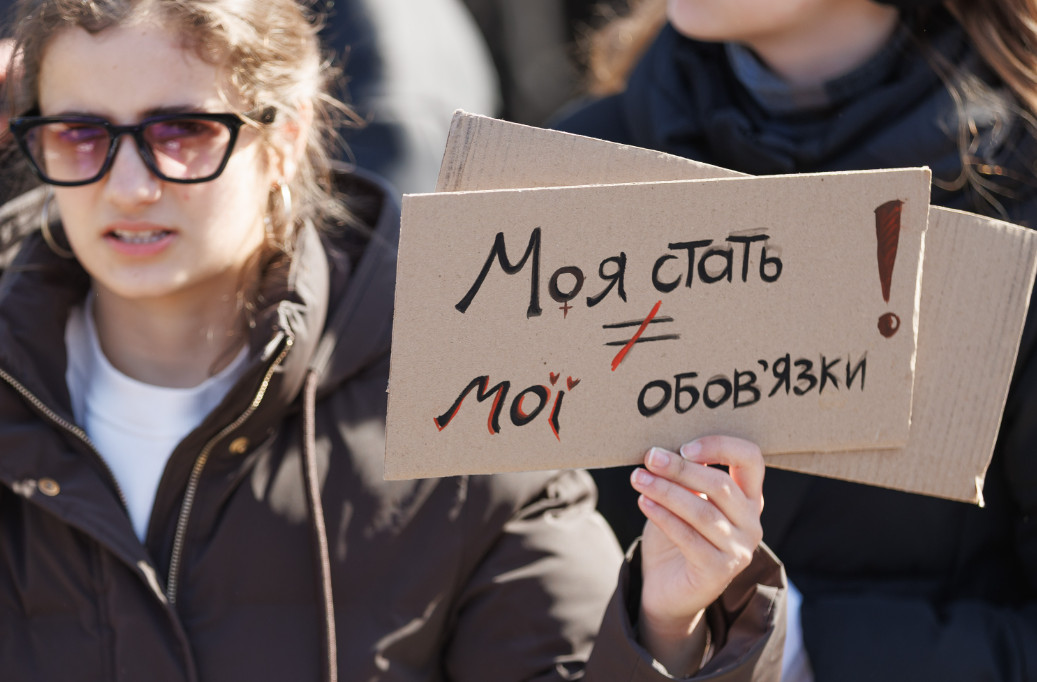 Моя стать !
≠
мої обов'язки